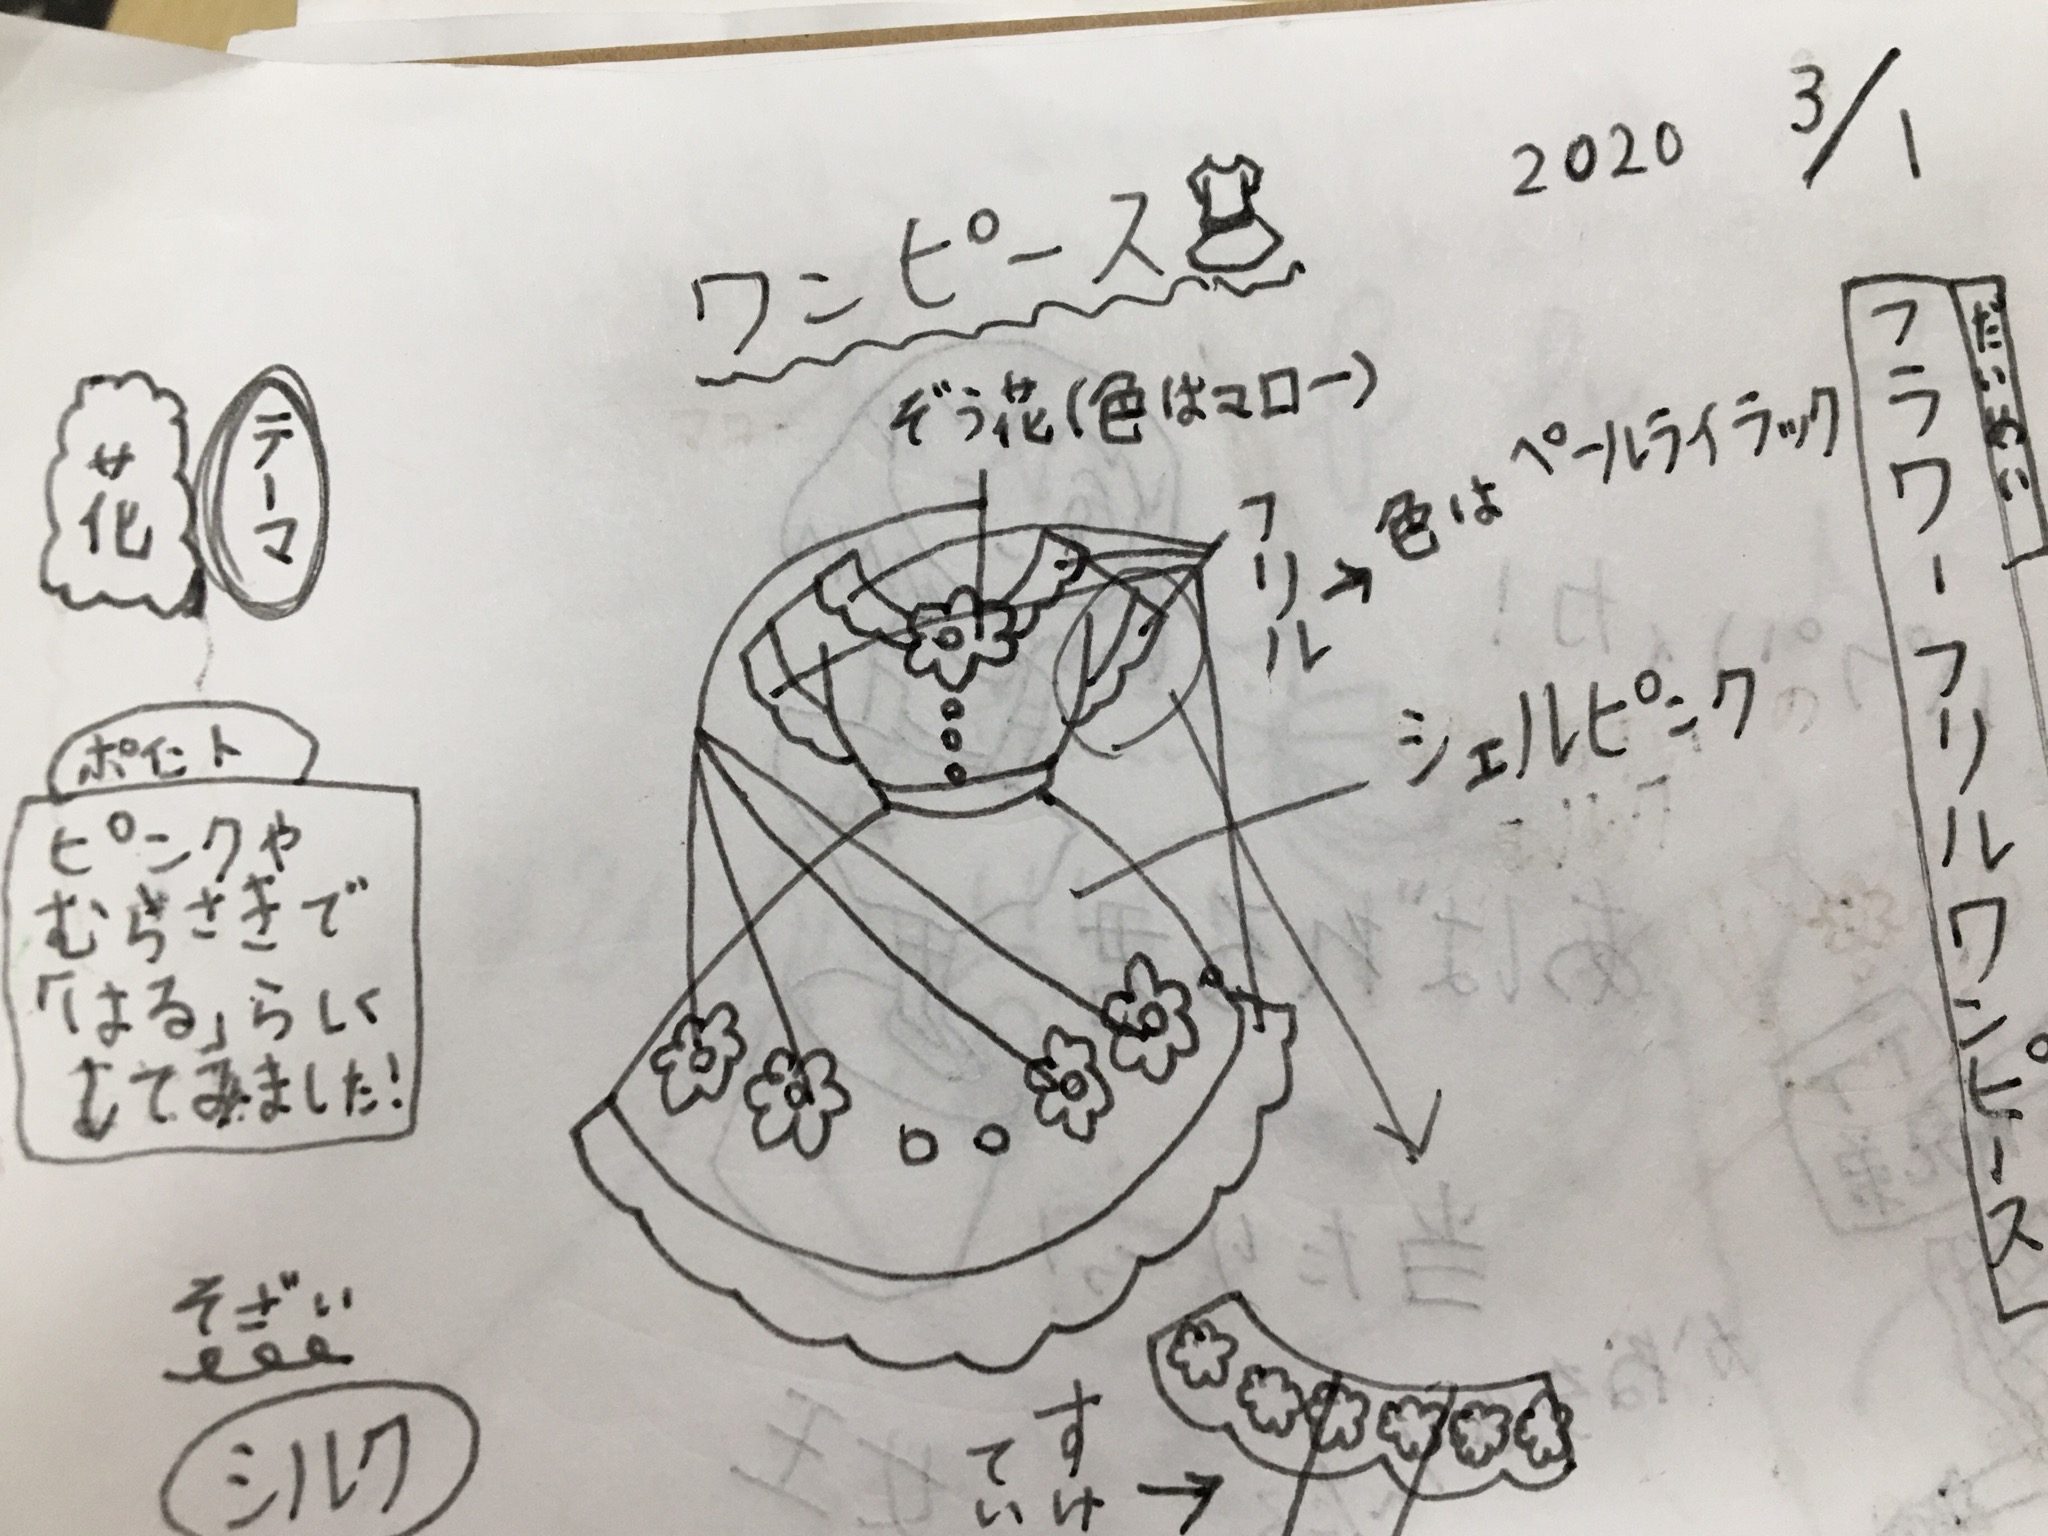 2020 3/1
ワンピース
だいめい
フラワーフリルワンピース
ぞう花(色はマロー)
フリル→色はペールライラック
シェルピンク
テーマ
花
ポイント
ピンクや
むらさきで
「はる」らしく
してみました!
そざい
シルク
すけ
てい
→